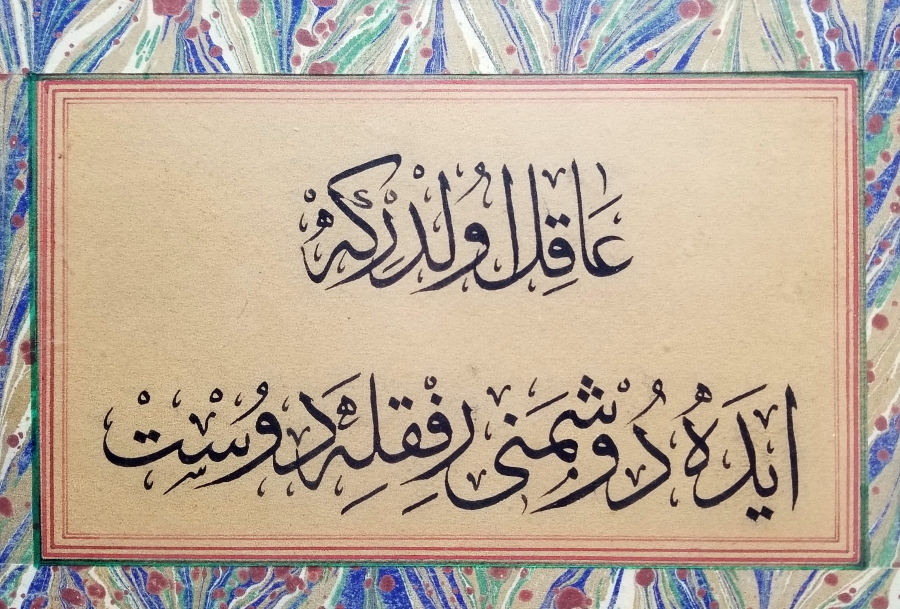 عَاقِل اُولْدُرْكِه
ايدَه دُوشْمَنِى رِفْقِلَه دُوسْت